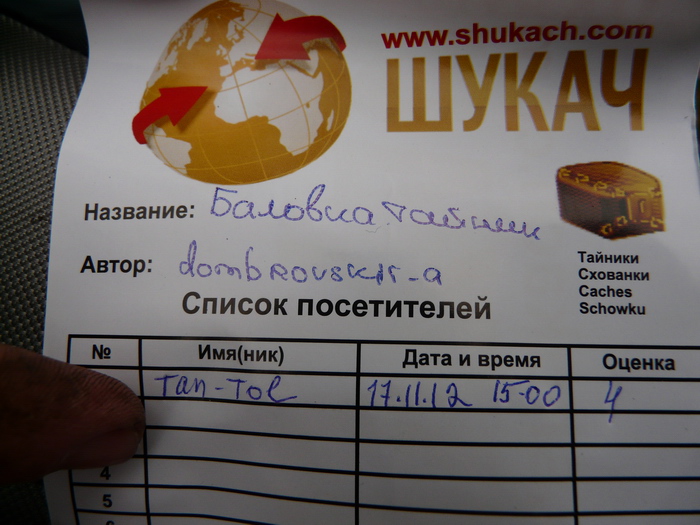 www.shukach.com
ШУКАЧ
Название: Баловка тайник
Автор: dombrovskii-a
Тайники
Схованки
Caches
Schowku
Список посетителей
№ Имя(ник) Дата и время Оценка
тап-Tol 17.11.12 15-00 4
4
5